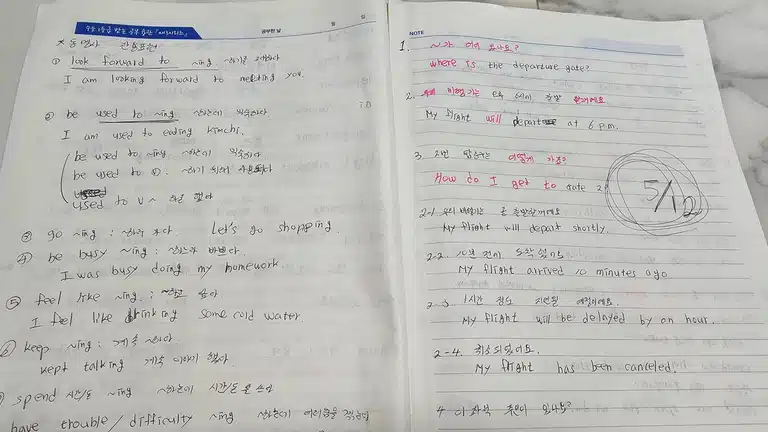 공부한 날 월 일
* 동명사 관용표현
① look forward to ~ing
I am looking forward to meeting you.
② be used to ~ing ~하는데 익숙하다.
I am used to eating kimchi.
be used to ~ing ~하는데 익숙하다
be used to
used to V ~ 하곤 했다
③ go ~ing : ~하러 가다 Let's go shopping.
④ be busy ~ing : 바쁘다.
I was busy doing my homework.
⑤ feel like ~ing : ~하고 싶다
I feel like drinking some cold water
keep ~ing : 계속
kept talking 계속 이야기 했다
spend 시간/돈 ~ing ~하는데 시간/돈을 쓰다
have trouble/difficulty ~ing ~하는데 어려움을
NOTE
1. ~가 어디
where is the departure gate?
2. 6시에 출발
My flight will depart at 6 p.m.
3. 2번 탑승구는 어떻게 가죠?
How do I get to gate 2
5/12
2-1. 곧
My flight will depart shortly.
2-2. 10분 전에
My flight arrived 10 minutes ago
2-3. 1시간 정도 지연될 예정이에요.
My flight will be delayed by an hour.
2-4. 취소되었어요.
My flight has been canceled.
4 이 좌석